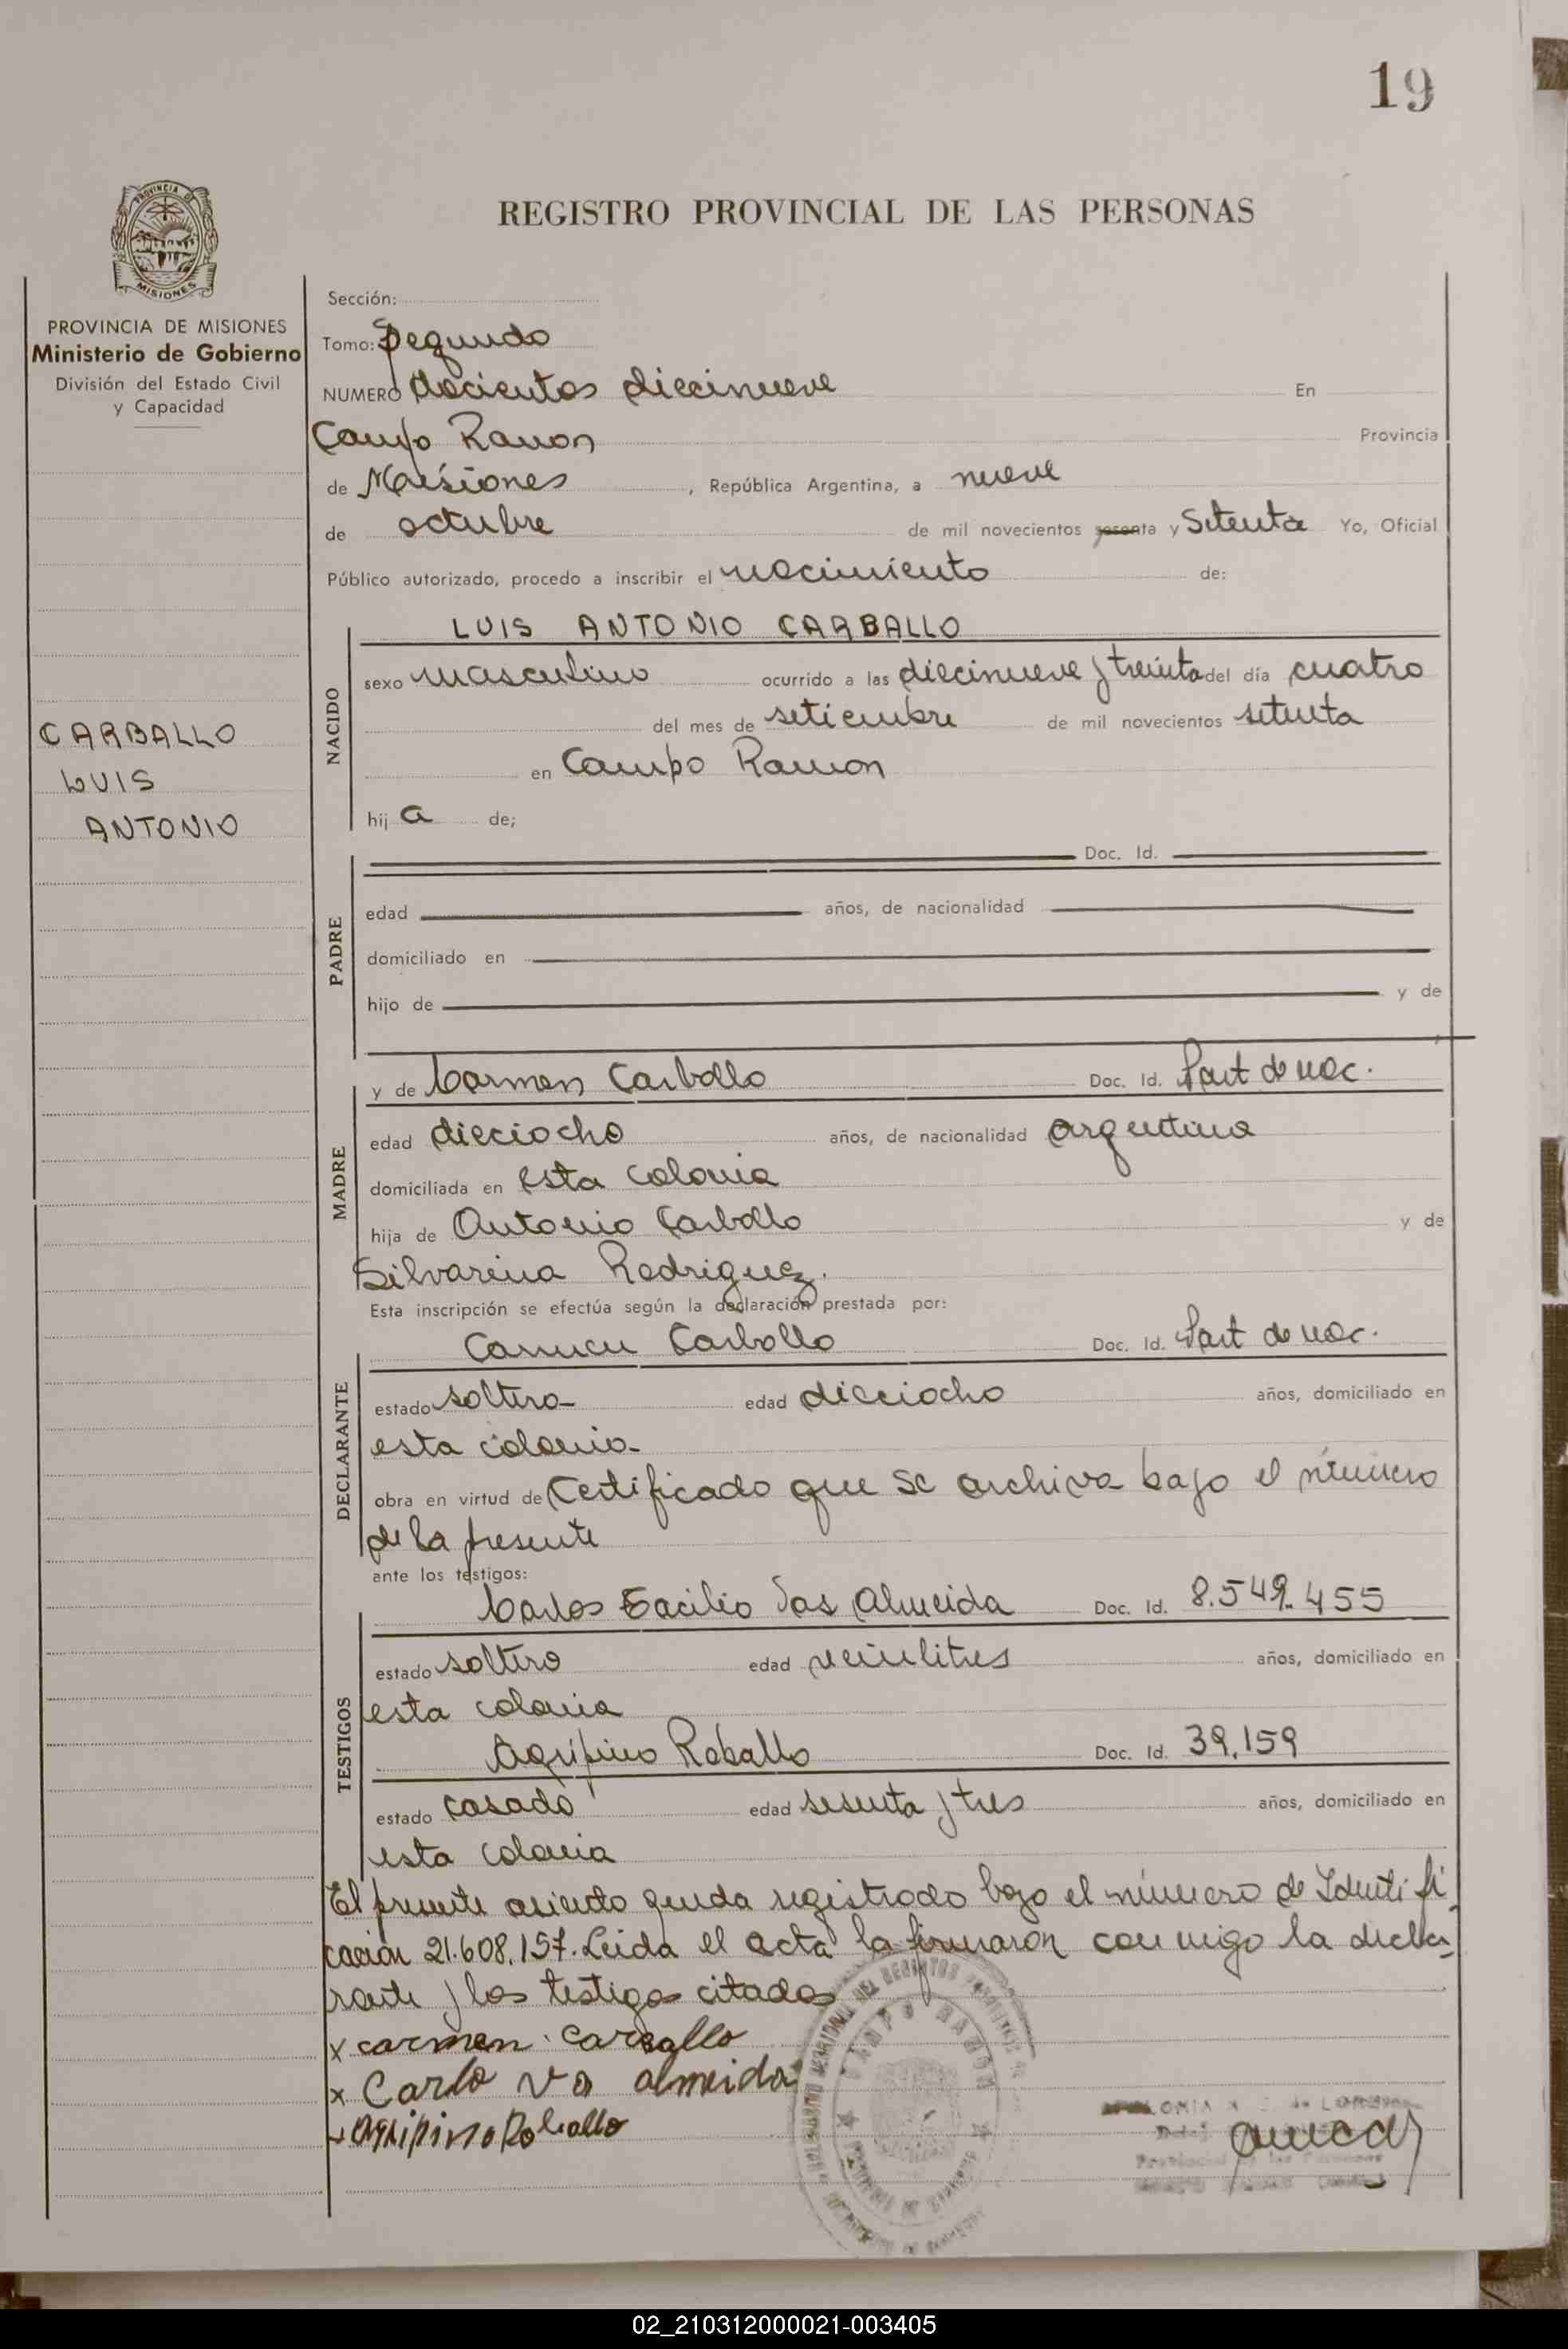 19
PROVINCIA DE
MISIONES
REGISTRO PROVINCIAL DE LAS PERSONAS
PROVINCIA DE MISIONES
Ministerio de Gobierno
División del Estado Civil
y Capacidad
CARBALLO
LUIS
ANTONIO
Sección:
Tomo: Segundo
NUMERO docientos diecinueve En
Campo Ramon Provincia
de Misiones, República Argentina, a nueve
de octubre de mil novecientos sesenta y Setenta Yo, Oficial
Público autorizado, procedo a inscribir el nacimiento de:
NACIDO
LUIS ANTONIO CARBALLO
sexo masculino ocurrido a las diecinueve y treinta del día cuatro
del mes de setiembre de mil novecientos setenta
en Campo Ramon
hij a de;
PADRE
Doc. Id.
edad años, de nacionalidad
domiciliado en
hijo de y de
MADRE
y de Carmen Carballo Doc. Id. Part de nac.
edad dieciocho años, de nacionalidad argentina
domiciliada en esta colonia
hija de Antonio Carballo y de
Silvarina Rodriguez.
Esta inscripción se efectúa según la declaración prestada por:
DECLARANTE
Carmen Carballo Doc. Id. Part de nac.
estado soltera edad dieciocho años, domiciliado en
esta colonia
obra en virtud de Certificado que se archiva bajo el número
de la presente
ante los testigos:
TESTIGOS
Carlos Das Almeida Doc. Id. 8.549.455
estado soltero edad veintitres años, domiciliado en
esta colonia
Agripino Roballo Doc. Id. 39.159
estado casado edad sesenta y tres años, domiciliado en
esta colonia
El presente asiento queda registrado bajo el número de Identifi
cación 21.608.157. Leida el acta la firmaron conmigo la decla
rante y los testigos citados
x carmen. carballo
x Carlo almeida
Agripino Roballo
CAMPO RAMON
02_210312000021-003405